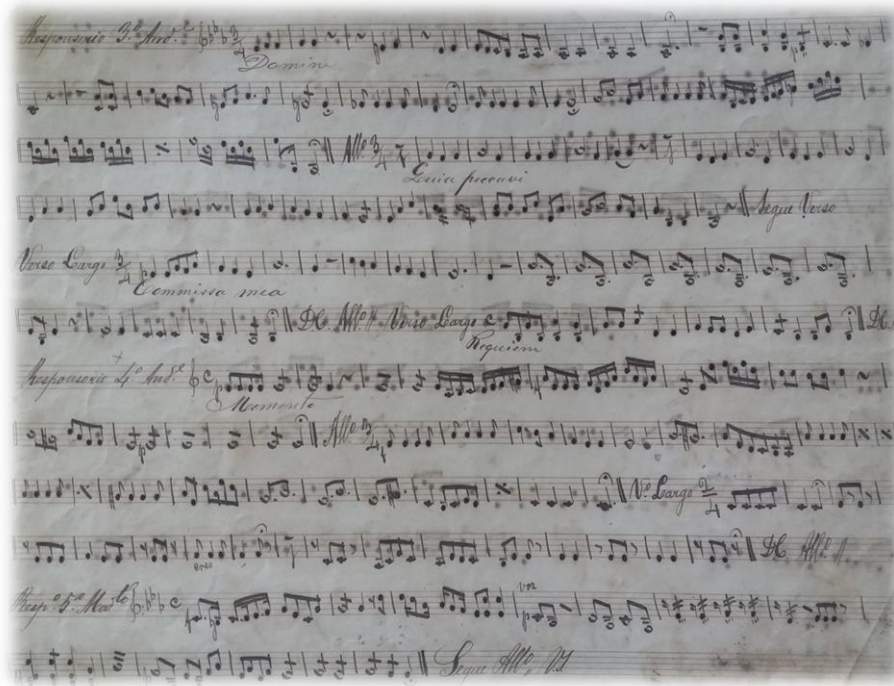 Responsorio 3.º And.e
Domine
All.º 3/4
Quia peccavi
Segue Verso
Verso Largo 3/4
Commissa mea
DC. All.º Verso Largo C DC.
Requiem
Responsorio 4.º And.e C
Memento
All.º 3/4
V.º Largo 2/4
DC. All.º
Resp.º 5.º Mod.to C
Segue All.º